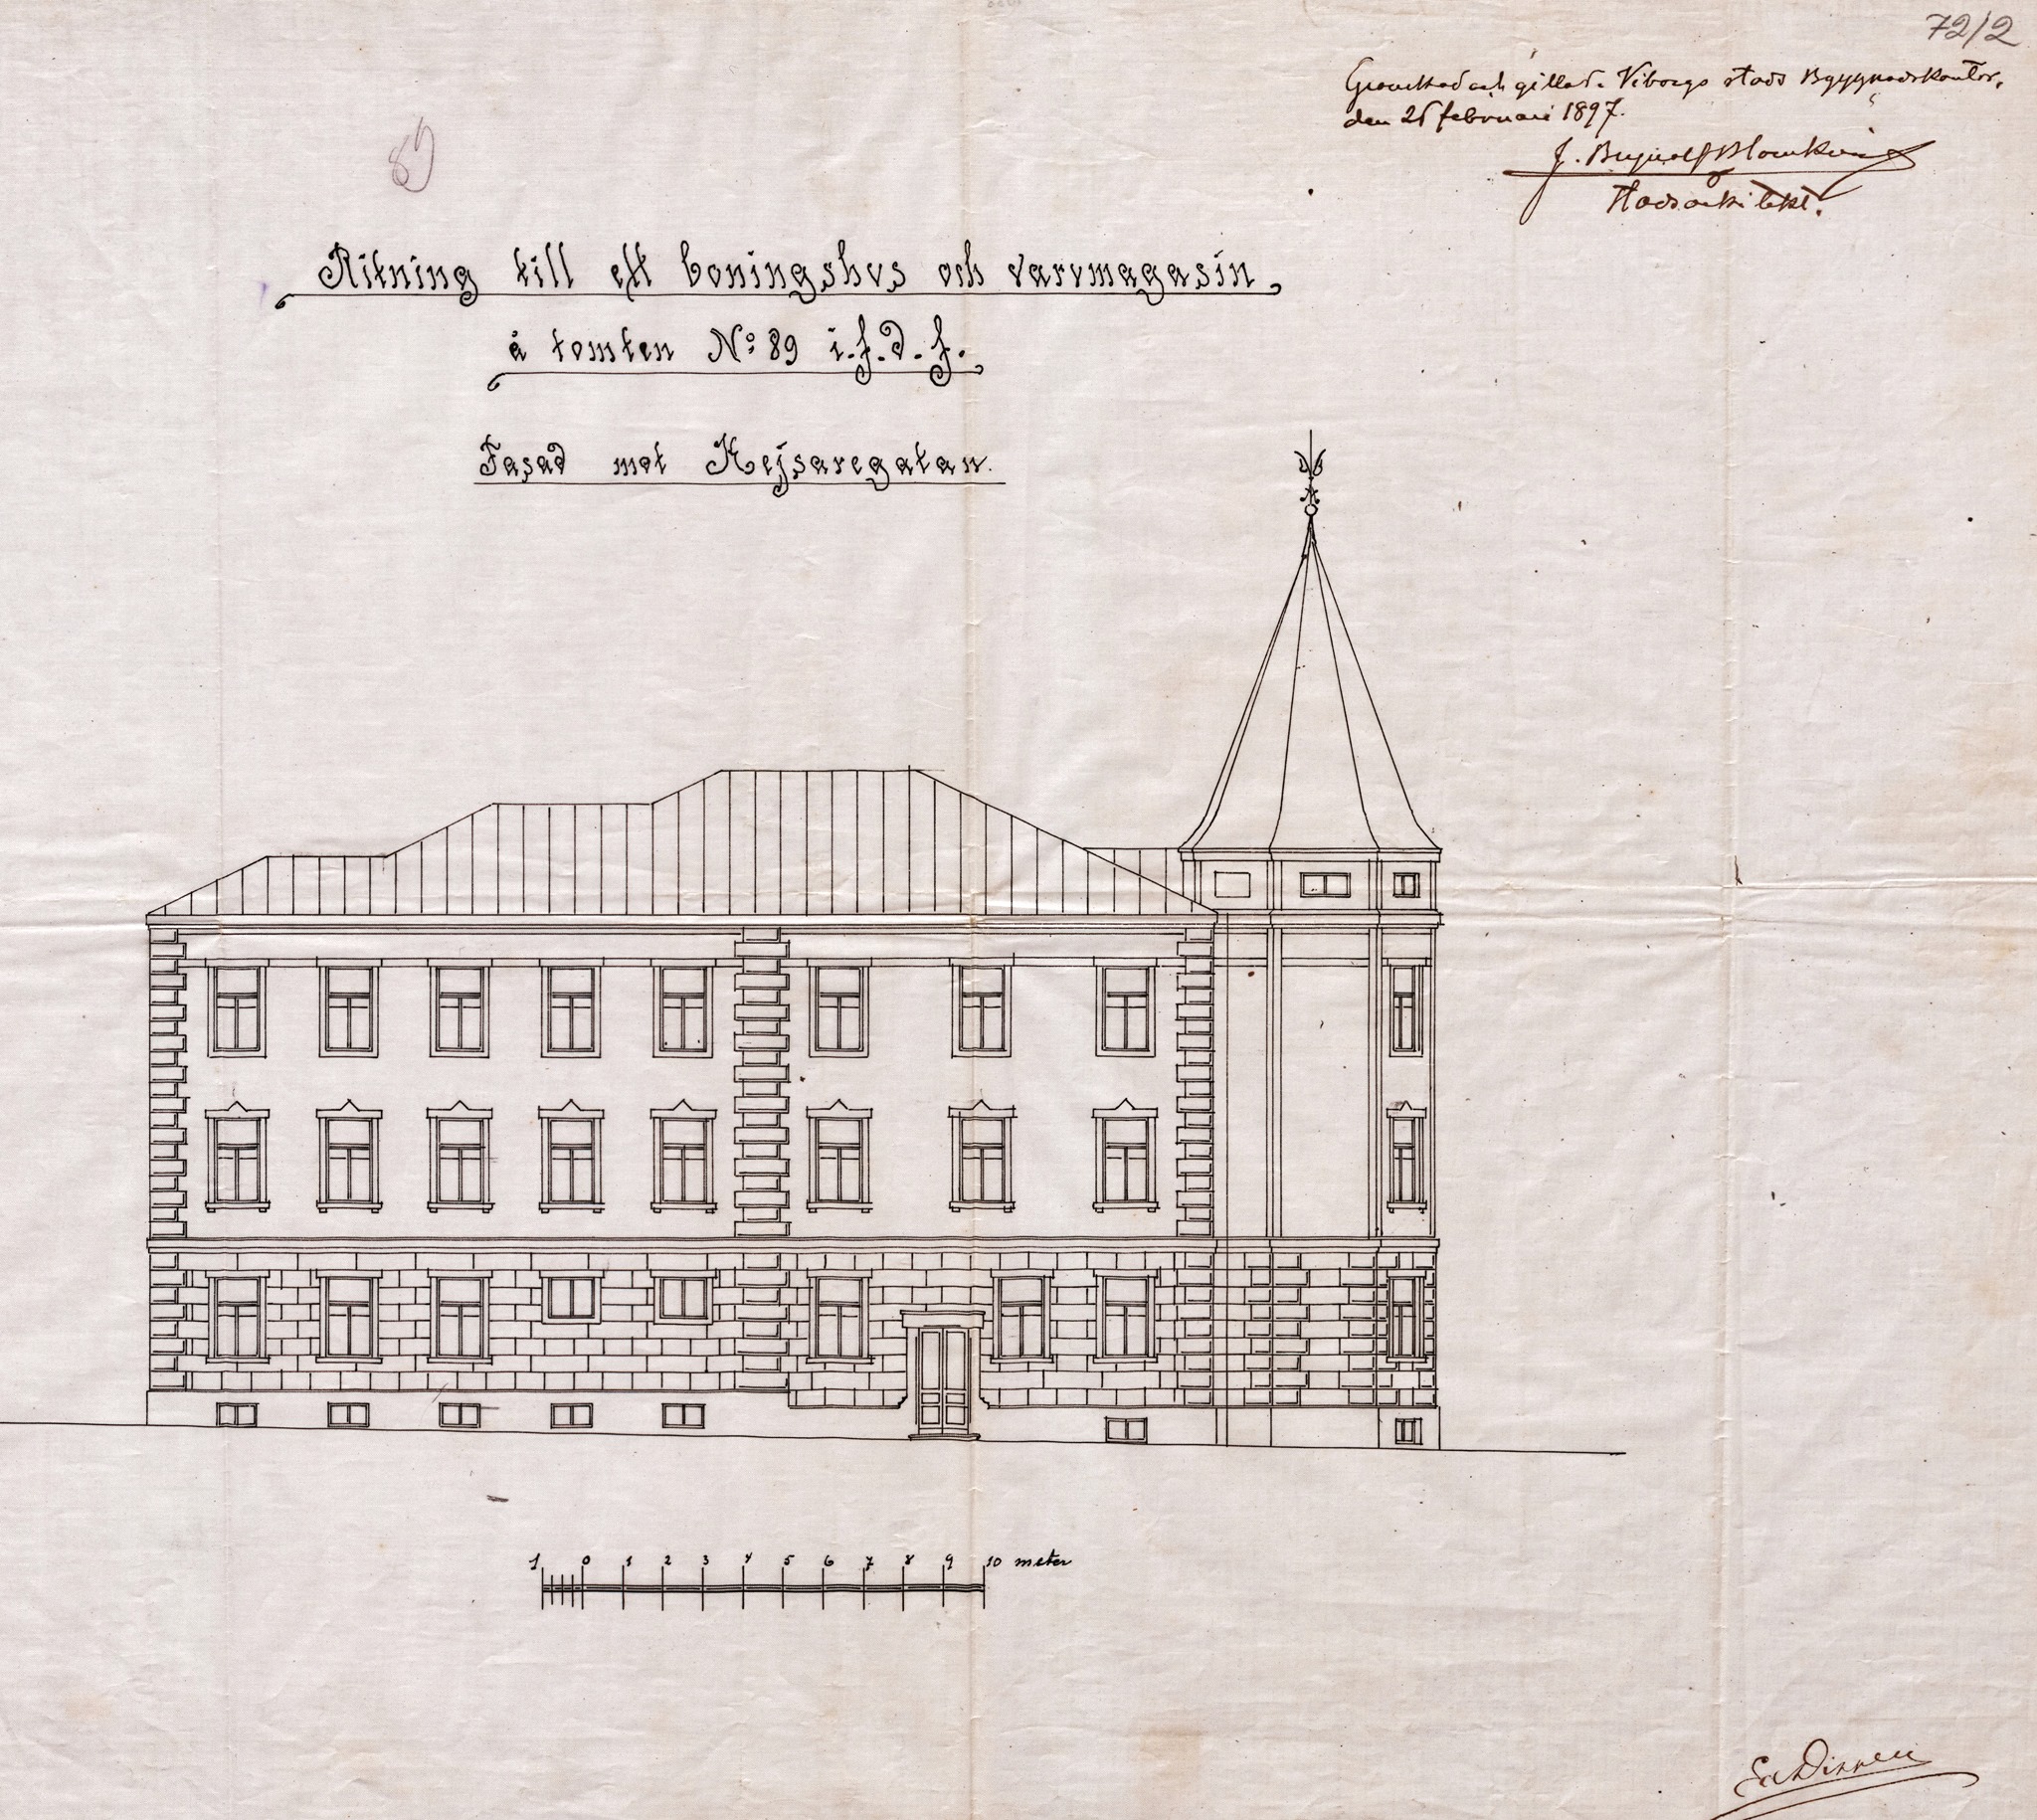 72/2
Granskad och gillad. Viborgs stads Byggnadskontor,
den 25 februari 1897.
J. Brynolf Blomkvist
Stadsarkitekt.
89
Ritning till ett boningshus och varumagasin
å tomten No 89 i.f.d.f.
Fasad mot Kejsaregatan.
1 0 1 2 3 4 5 6 7 8 9 10 meter
Ed Dippell